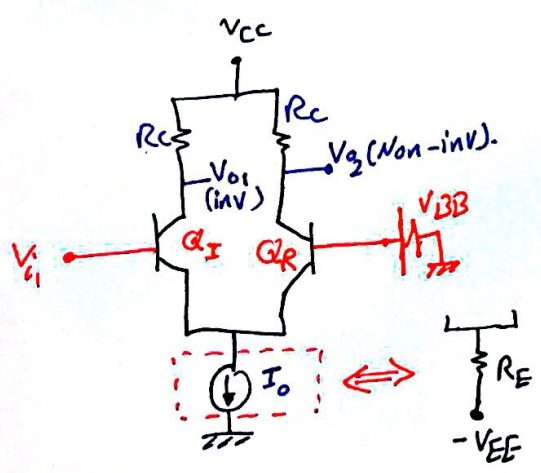 VCC
RC
RC
Vo1
(inv)
Vo2 (Non-inv).
VBB
Vi1
QI
QR
Io
RE
-VEE